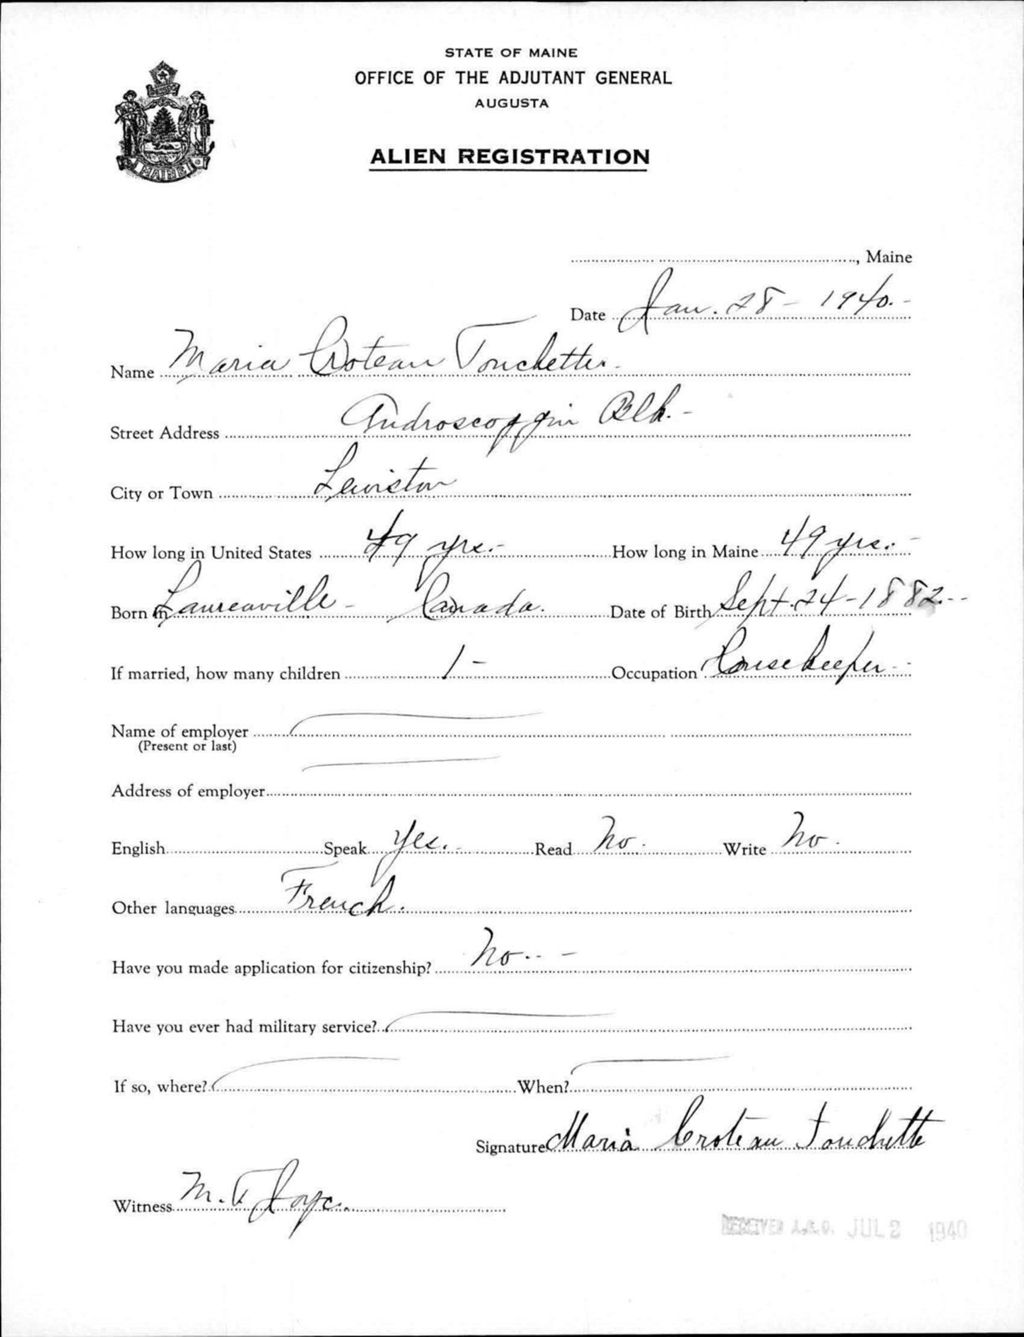 STATE OF MAINE
OFFICE OF THE ADJUTANT GENERAL
AUGUSTA
ALIEN REGISTRATION
MAINE
, Maine
Date Jan. 28 - 1940. -
Name Maria Croteau Touchette.
Street Address Androscoggin Blk. -
City or Town Lewiston
How long in United States 49 yrs. - How long in Maine 49 yrs. -
Born in Laureaville - Canada. Date of Birth Sept. 24 - 1882. -
If married, how many children 1 - Occupation Housekeeper -
Name of employer
(Present or last)
Address of employer
English Speak Yes. Read No. Write No.
Other languages French.
Have you made application for citizenship? No. - -
Have you ever had military service?
If so, where? When?
Signature Maria Croteau Touchette
Witness M. F. Joyce.
RECEIVED A.G.O. JUL 2 1940